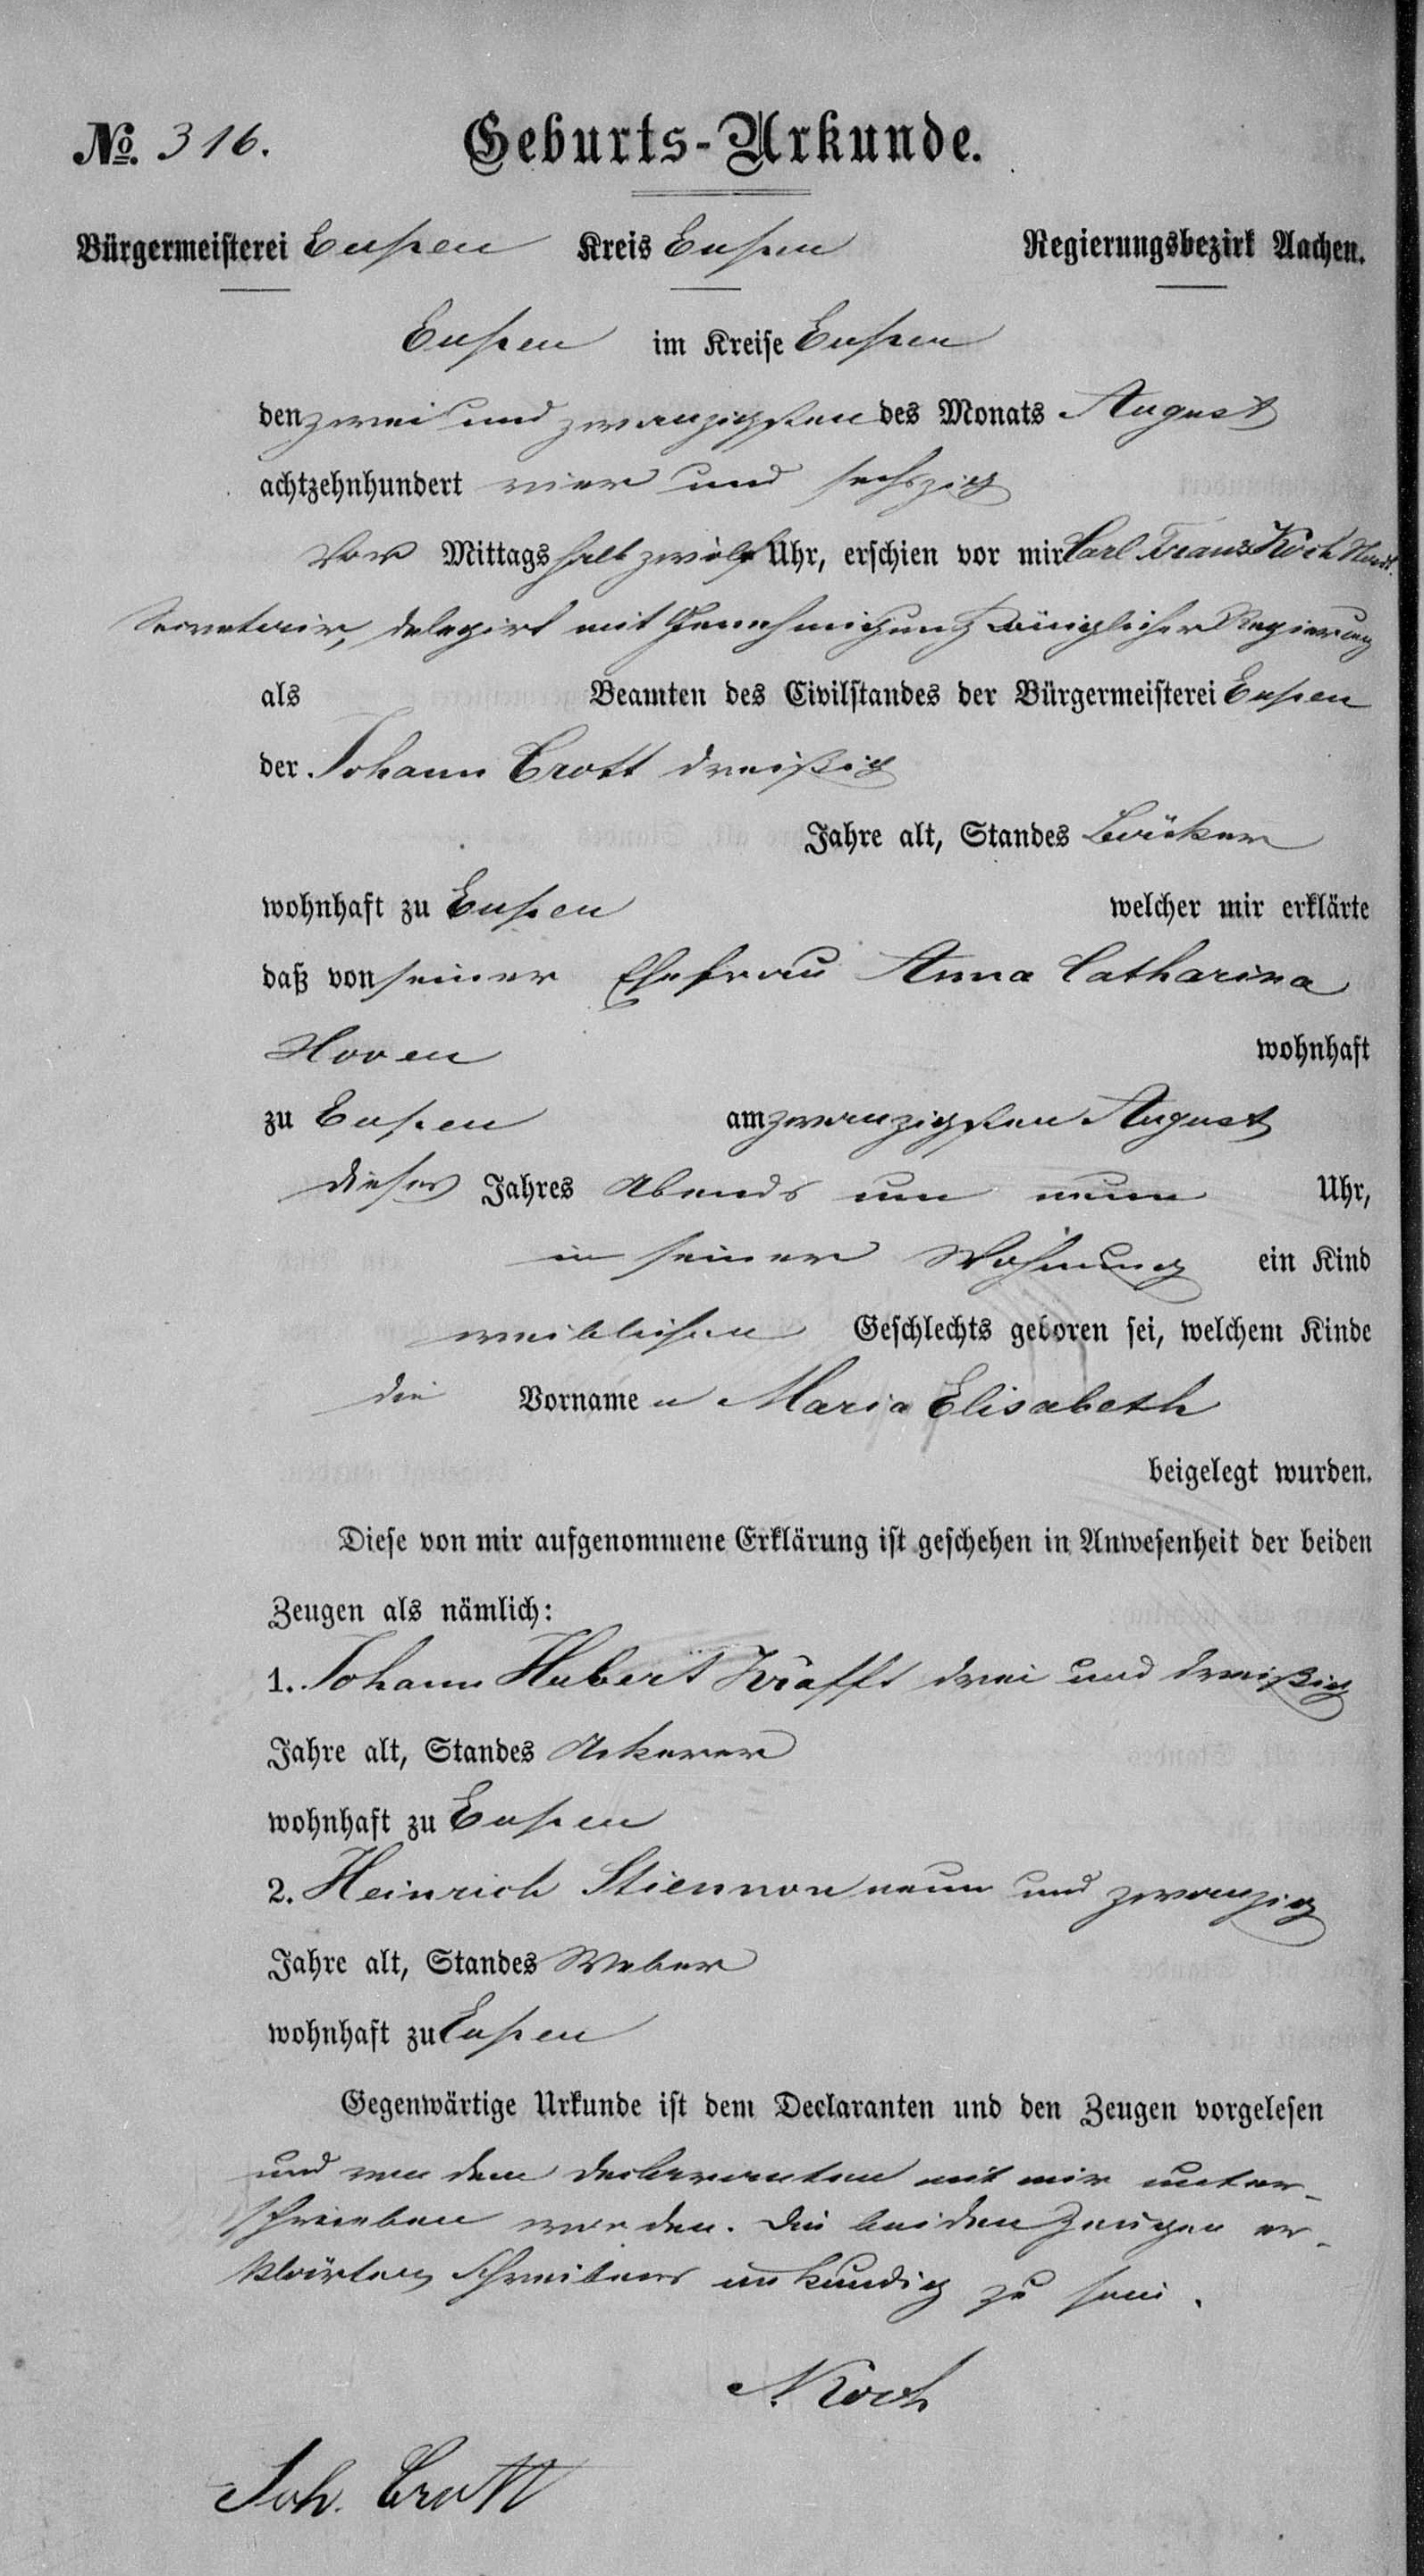 No. 316. Geburts-Urkunde.
Bürgermeisterei Eupen Kreis Eupen Regierungsbezirk Aachen.
Eupen im Kreise Eupen
den zwei und zwanzigsten des Monats August
achtzehnhundert vier und sechszig
Vor Mittags halb zwölf Uhr, erschien vor mir Carl Franz Koch Stadt-
Secretair, delegirt mit Genehmigung Königlicher Regierung
als Beamten des Civilstandes der Bürgermeisterei Eupen
der Johann Crott dreißig
Jahre alt, Standes Bäcker
wohnhaft zu Eupen welcher mir erklärte
daß von seiner Ehefrau Anna Catharina
Hoven wohnhaft
zu Eupen am zwanzigsten August
dieses Jahres Abends um neun Uhr,
in seiner Wohnung ein Kind
weiblichen Geschlechts geboren sei, welchem Kinde
die Vornamen Maria Elisabeth
beigelegt wurden.
Diese von mir aufgenommene Erklärung ist geschehen in Anwesenheit der beiden
Zeugen als nämlich:
1. Johann Hubert Krafft drei und dreißig
Jahre alt, Standes Ackerer
wohnhaft zu Eupen
2. Heinrich Stiennon neun und zwanzig
Jahre alt, Standes Weber
wohnhaft zu Eupen
Gegenwärtige Urkunde ist dem Declaranten und den Zeugen vorgelesen
und von dem Declaranten mit mir unter-
schrieben worden. Die beiden Zeugen er-
klärten Schreibens unkundig zu sein.
Koch
Joh. Crott